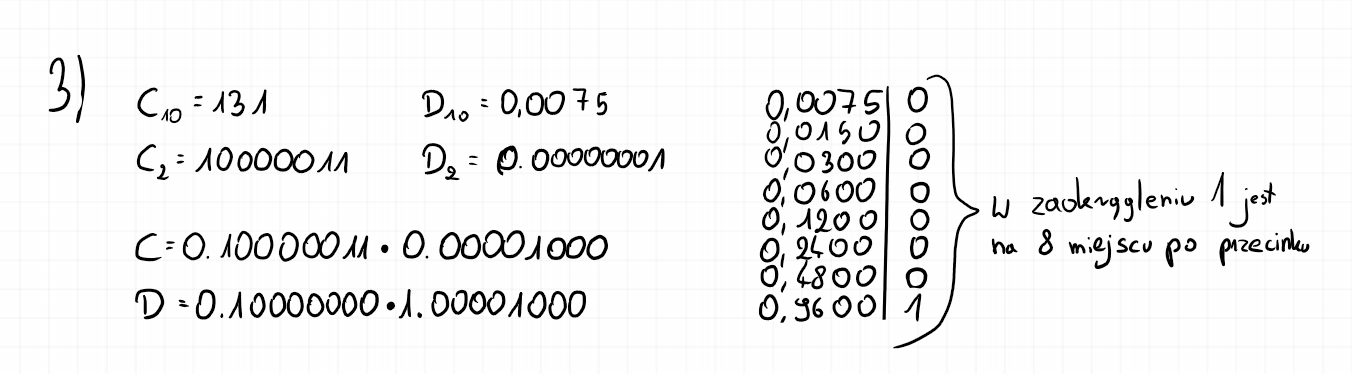 3)
C₁₀ = 131
D₁₀ = 0,0075
C₂ = 10000011
D₂ = 0.00000001
C = 0.10000011 • 0.00001000
D = 0.10000000 • 1.00001000
0,0075 | 0
0,0150 | 0
0,0300 | 0
0,0600 | 0
0,1200 | 0
0,2400 | 0
0,4800 | 0
0,9600 | 1
W zaokrągleniu 1 jest
na 8 miejscu po przecinku